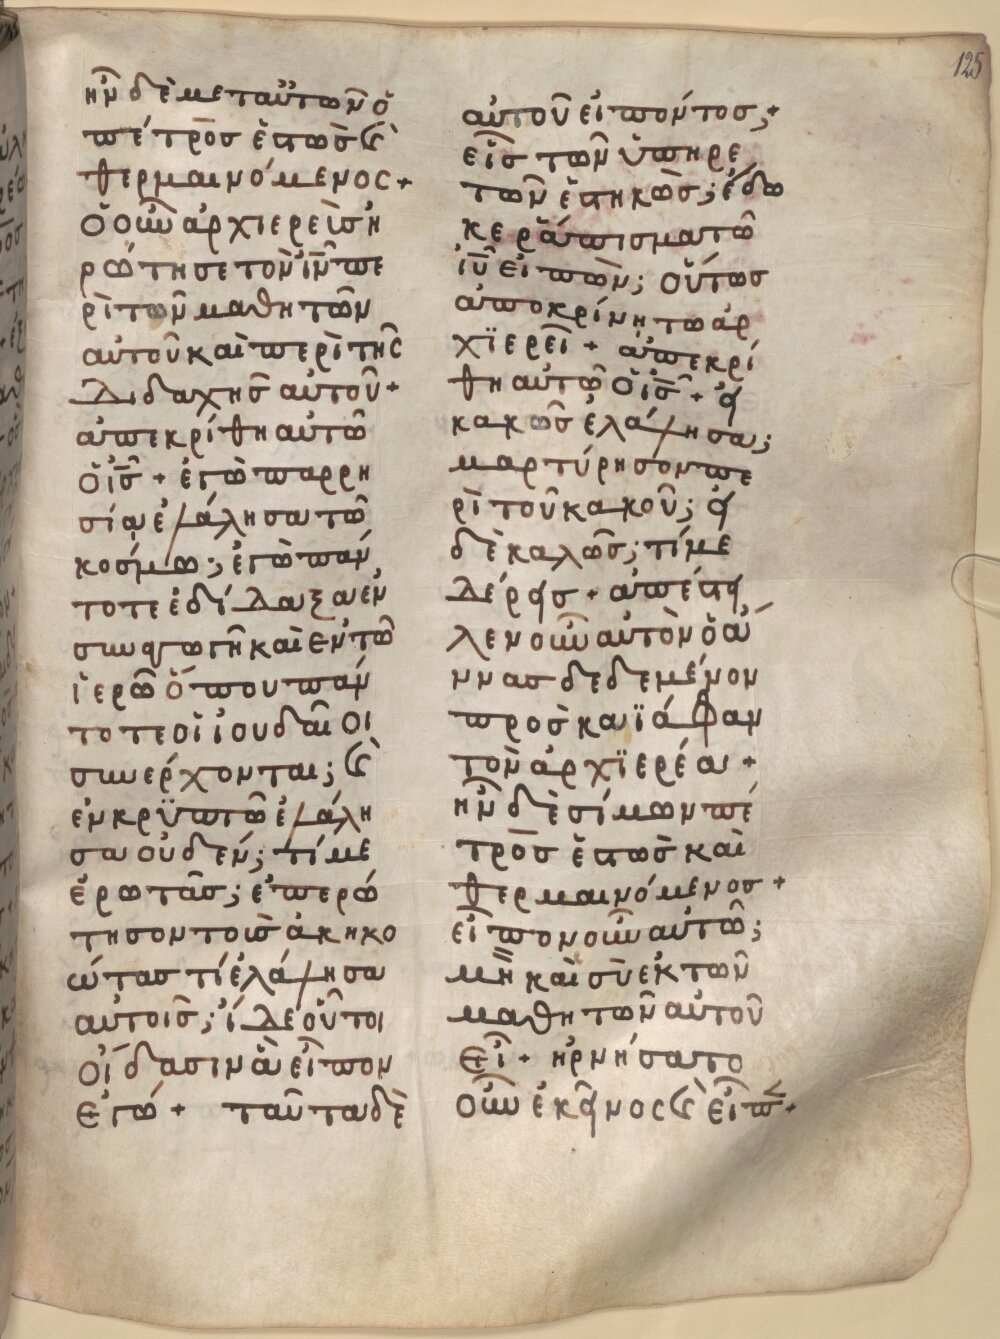 125
ἦν δὲ μετ αὐτῶν ὁ
πέτρος ἑστὼς ϗ
θερμαινόμενος +
ὁ οὖν ἀρχιερεὺς ἠ
ρώτησε τὸν ἰν̅ πε
ρὶ τῶν μαθητῶν
αὐτοῦ καὶ περὶ τῆς
διδαχῆς αὐτοῦ +
ἀπεκρίθη αὐτῶ
ὁ ἰς̅ + ἐγὼ παρρη
σία ἐλάλησα τῶ
κοσμω; ἐγὼ πάν
τοτε ἐδίδαξα ἐν
συναγωγῆ καὶ ἐν τῶ
ἱερῶ ὅπου πάν
τοτε οἱ ἰουδαῖοι
συνέρχονται; ϗ
ἐν κρϋπτῶ ἐλάλη
σα οὐδέν; τί με
ἐρωτᾶς; ἐπερώ
τησον τοὺς ἀκηκο
ώτας τί ἐλάλησα
αὐτοῖς; ἴδε οὗτοι
οἴδασιν ἃ εἶπον
ἐγώ + ταῦτα δὲ
αὐτοῦ εἰπόντος; +
εἷς τῶν ὑπηρε
τῶν ἑστηκὼς; ἔδω
κε ράπισμα τῶ
ἰῦ̅ εἰπὼν; οὕτως
ἀποκρίνη τω ἀρ
χϊερεῖ + ἀπεκρί
θη αὐτῶ ὁ ἰς̅ + εἰ
κακῶς ἐλάλησα;
μαρτύρησον πε
ρὶ τοῦ κακοῦ; εἰ
δὲ καλῶς; τί με
δέρεις + ἀπέστει
λεν οὖν αὐτὸν ὁ ἄ
ννας δεδεμένον
πρὸς καϊάφαν
τὸν ἀρχϊερέα +
ἦν δὲ σίμων πέ
τρος ἑστὼς καὶ
θερμαινόμενος +
εἶπον οὖν αὐτῶ;
μὴ καὶ σὺ ἐκ τῶν
μαθητῶν αὐτοῦ
εἶ + ἠρνήσατο
οὖν ἐκεῖνος ϗ εἶπε +